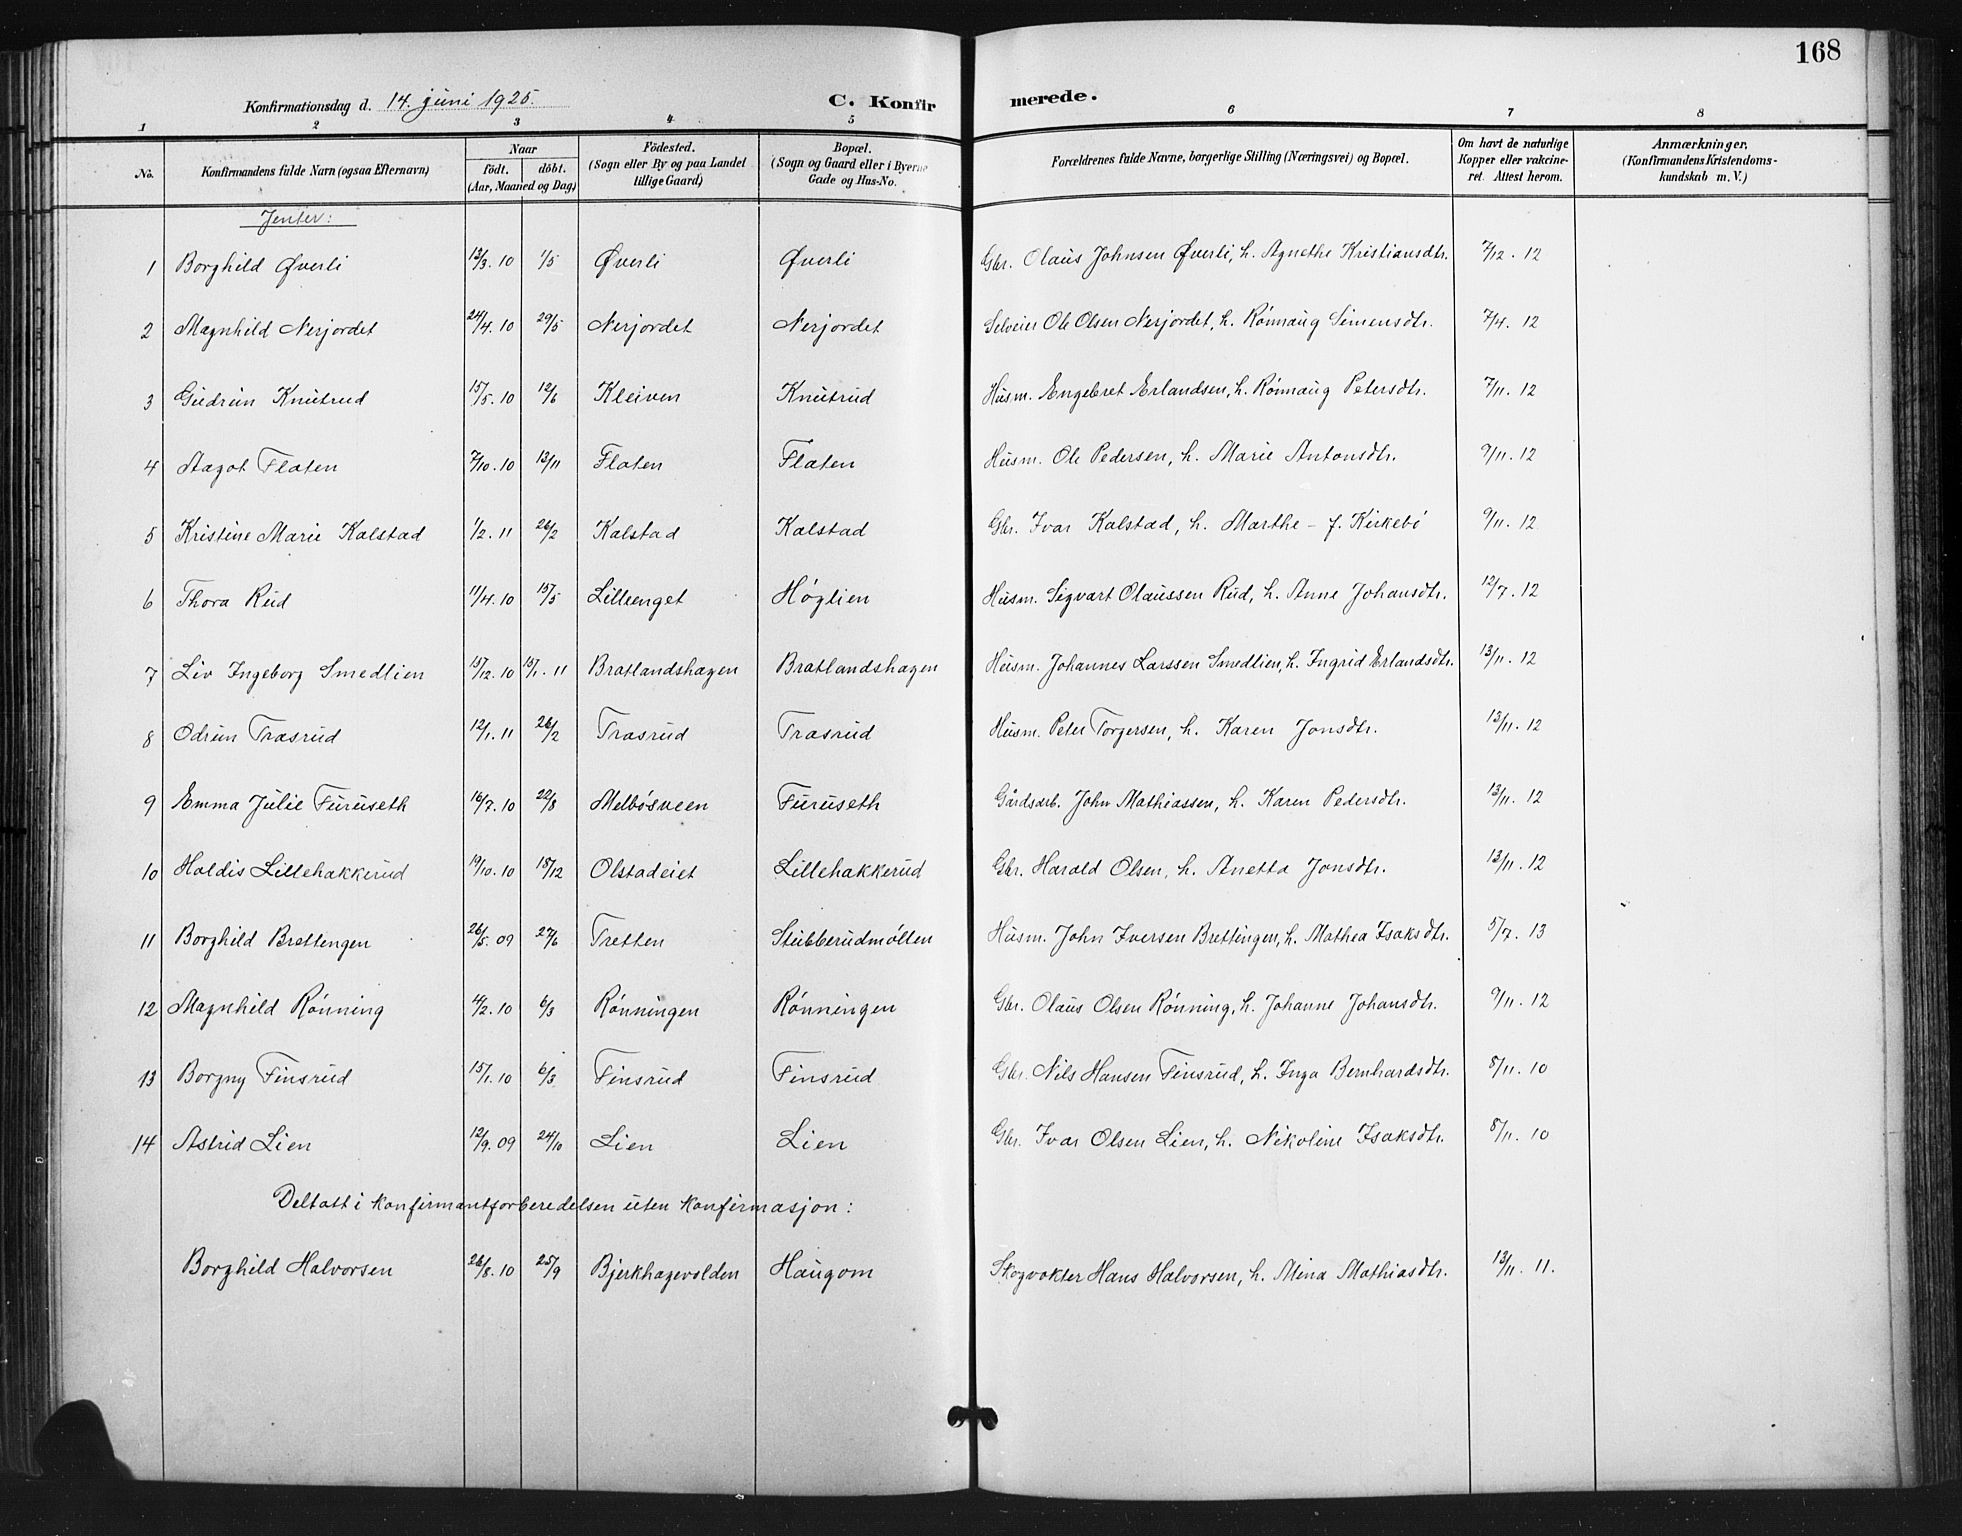 168
Konfirmationsdag d. 14. juni 1925. C. Konfirmerede.
1 2 3 4 5 6 7 8
No. Konfirmandens fulde Navn (ogsaa Efternavn) Naar født. døbt. (Aar, Maaned og Dag) Fødested. (Sogn eller By og paa Landet tillige Gaard) Bopæl. (Sogn og Gaard eller i Byerne Gade og Hus-No. Forældrenes fulde Navne, borgerlige Stilling (Næringsvei) og Bopæl. Om havt de naturlige Kopper eller vakcineret. Attest herom. Anmærkninger. (Konfirmandens Kristendomskundskab m. V.)
Jenter:
1 Borghild Øverli 12/3. 10 1/5 Øverli Øverli Gbr. Olaus Johnsen Øverli, h. Agnethe Kristiansdtr. 7/12. 12
2 Magnhild Nerjordet 24/4. 10 29/5 Nerjordet Nerjordet Selveier Ole Olsen Nerjordet, h. Rønnaug Simensdtr. 7/4. 12
3 Gudrun Knutrud 15/5. 10 12/6 Kleiven Knutrud Husm. Engebret Erlandsen, h. Rønnaug Petersdtr. 7/11. 12
4 Aagot Flaten 7/10. 10 13/11 Flaten Flaten Husm. Ole Pedersen, h. Marie Antonsdtr. 9/11. 12
5 Kristine Marie Kalstad 1/2. 11 26/2 Kalstad Kalstad Gbr. Ivar Kalstad, h. Marthe - f. Kirkebø 9/11. 12
6 Thora Rud 11/4. 10 15/5 Lilleenget Høglien Husm. Sigvart Olaussen Rud, h. Anne Johansdtr. 12/7. 12
7 Liv Ingeborg Smedlien 15/12. 10 15/1. 11 Bratlandshagen Bratlandshagen Husm. Johannes Larssen Smedlien, h. Ingrid Erlandsdtr. 13/11. 12
8 Odrun Trasrud 12/1. 11 26/2 Trasrud Trasrud Husm. Peter Torgersen, h. Karen Jonsdtr. 13/11. 12
9 Emma Julie Furuseth 16/7. 10 22/8 Melbøsveen Furuseth Gårdsarb. John Mathiassen, h. Karen Pedersdtr. 13/11. 12
10 Haldis Lillehakkerud 19/10. 10 18/12 Olstadeiet Lillehakkerud Gbr. Harald Olsen, h. Anetta Jonsdtr. 13/11. 12
11 Borghild Brettengen 26/5. 09 27/6 Tretten Stubberudmølten Husm. John Iversen Brettingen, h. Mathea Isaksdtr. 5/7. 13
12 Magnhild Rønning 4/2. 10 6/3 Rønningen Rønningen Gbr. Olaus Olsen Rønning, h. Johanne Johansdtr. 9/11. 12
13 Borgny Finsrud 15/1. 10 6/3 Finsrud Finsrud Gbr. Nils Hansen Finsrud, h. Inga Bernhardsdtr. 8/11. 10
14 Astrid Lien 12/9. 09 24/10 Lien Lien Gbr. Ivar Olsen Lien, h. Nikoline Isaksdtr. 8/11. 10
Deltatt i konfirmantforberedelsen uten konfirmasjon:
Borghild Halvorsen 26/8. 10 25/9 Bjerkhagevolden Haugom Skogvokter Hans Halvorsen, h. Mina Mathiasdtr. 13/11. 11.